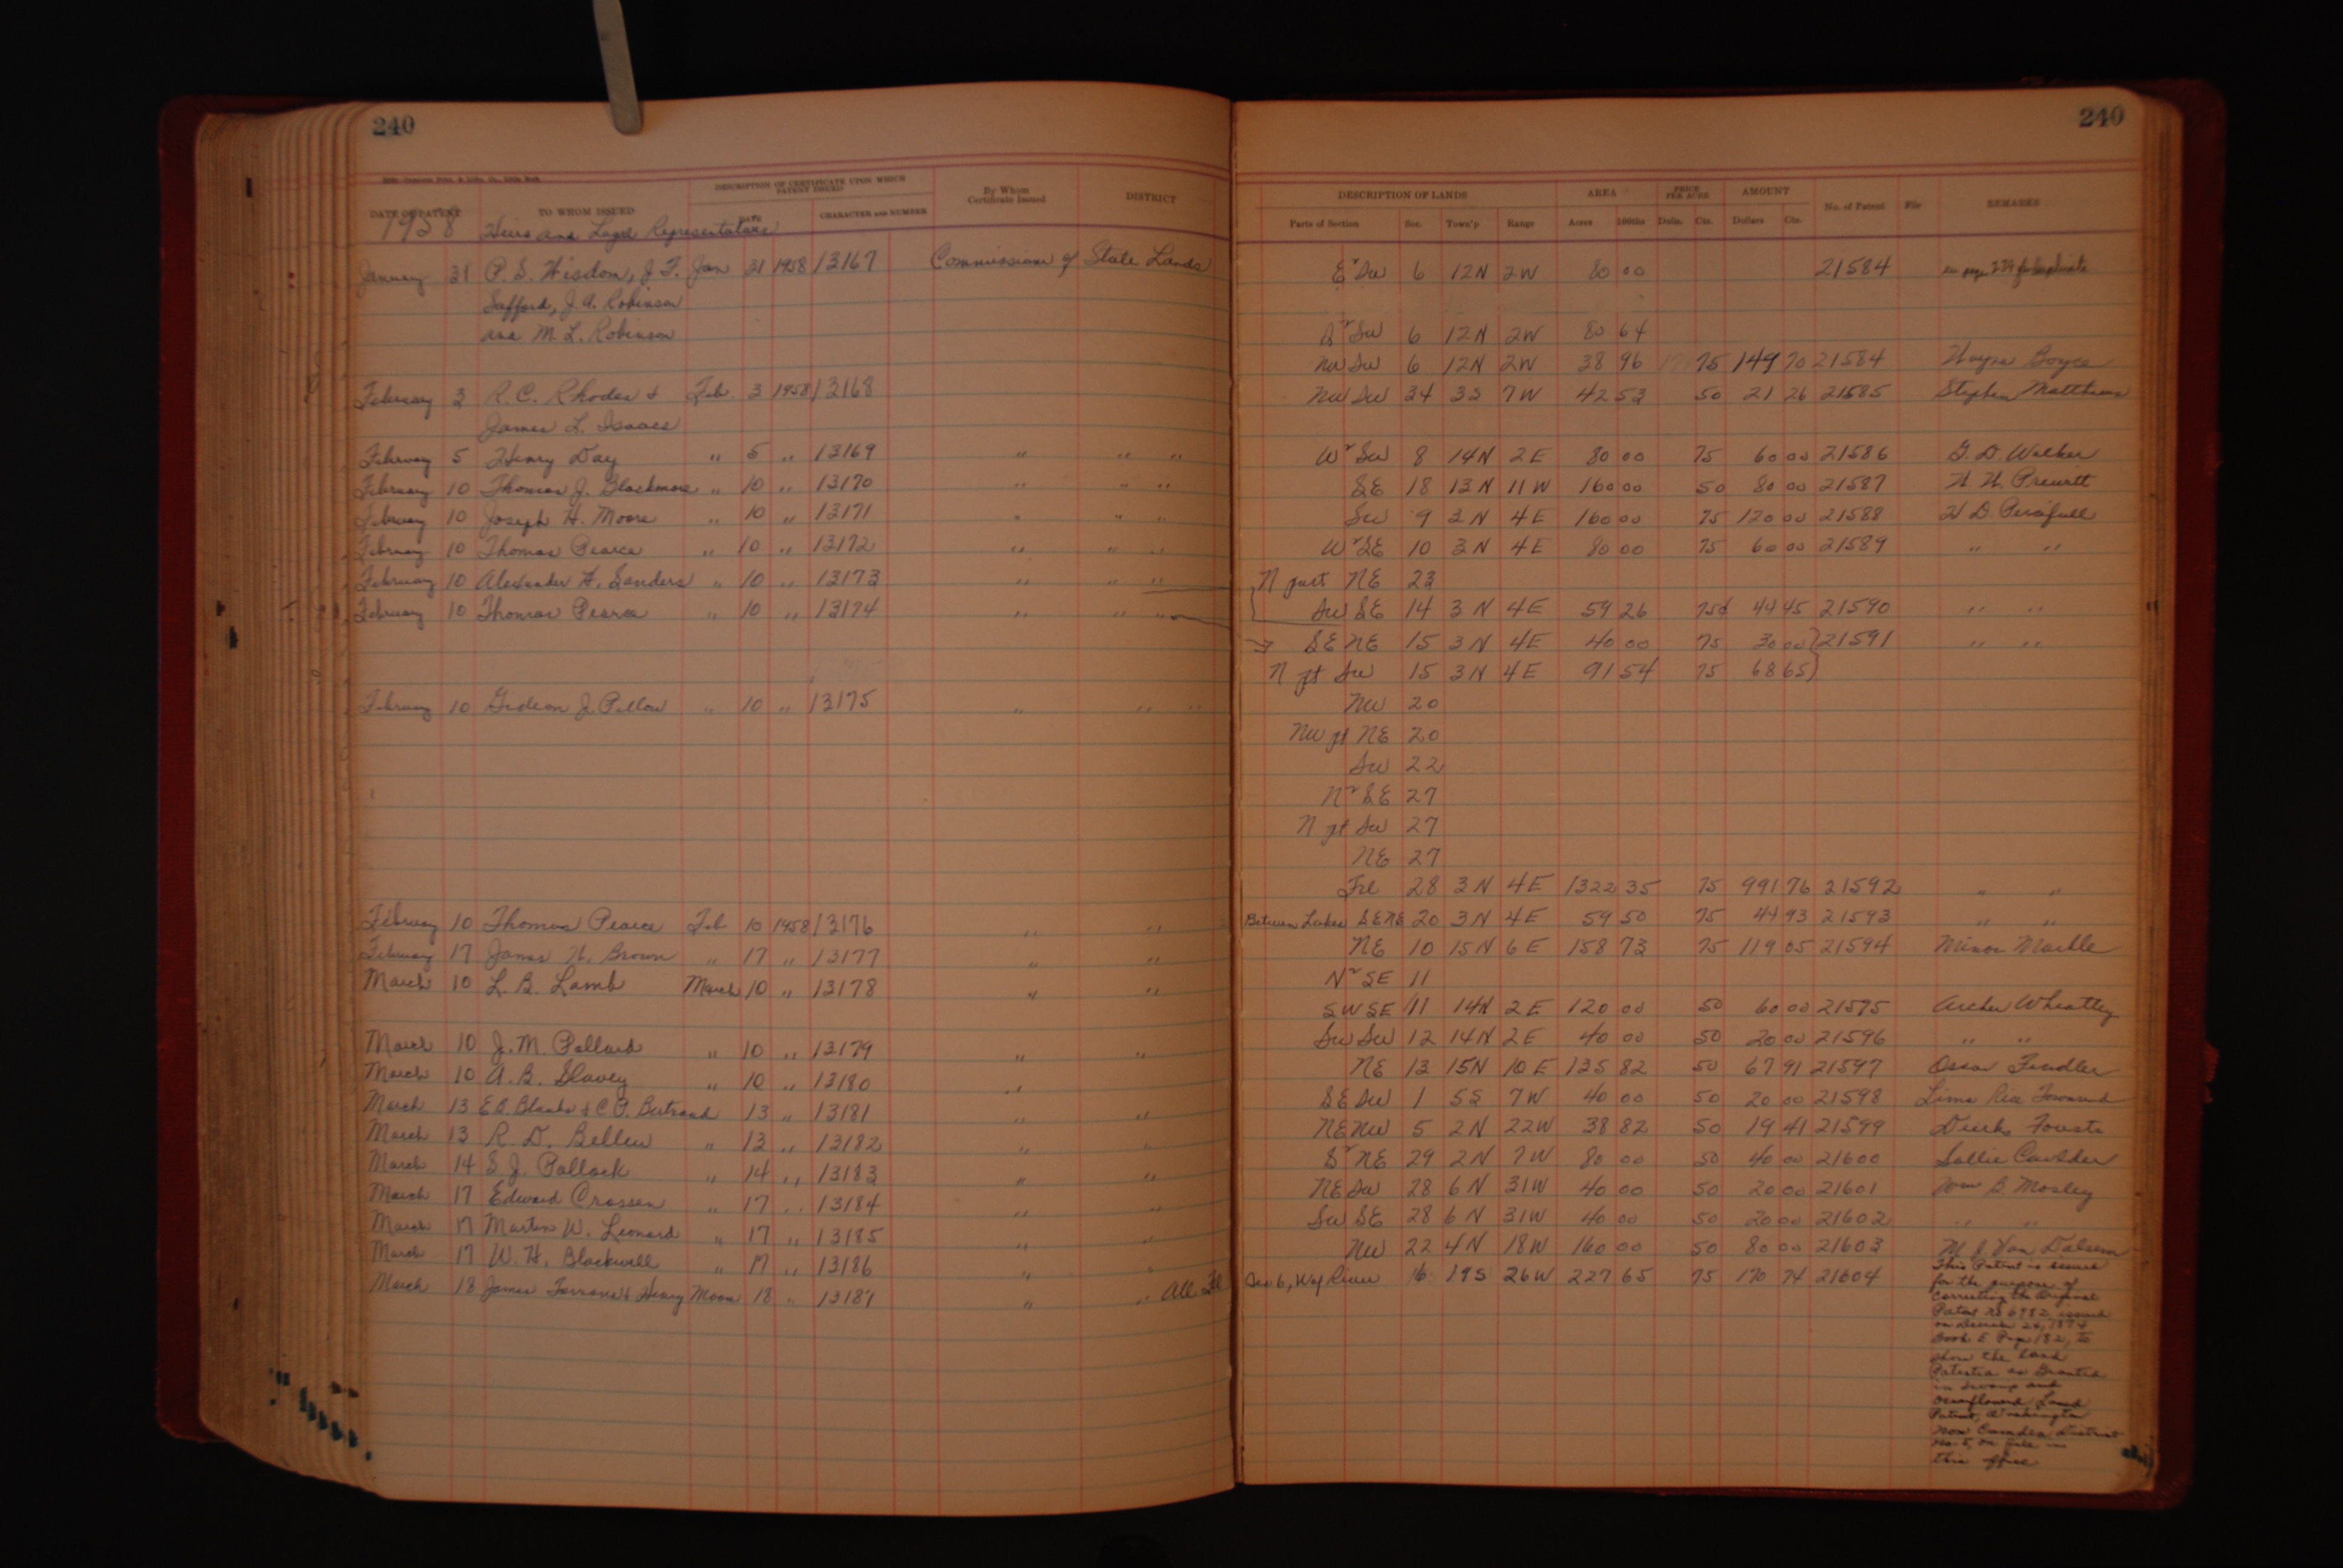 240
DATE OF PATENT TO WHOM ISSUED DESCRIPTION OF CERTIFICATE UPON WHICH PATENT ISSUED DATE CHARACTER AND NUMBER By Whom Certificate Issued DISTRICT
1958 Heirs and Legal Representatives
January 31 P. S. Wisdom, J. F. Jan 31 1958 13167 Commissioner of State Lands
Safford, J. A. Robinson
and M. L. Robinson
February 3 R. C. Rhodes & Feb 3 1958 13168
James L. Isaacs
February 5 Henry Day " 5 " 13169 " " "
February 10 Thomas J. Blackmore " 10 " 13170 " " "
February 10 Joseph H. Moore " 10 " 13171 " " "
February 10 Thomas Pearce " 10 " 13172 " " "
February 10 Alexander H. Sanders " 10 " 13173 " " "
February 10 Thomas Pearce " 10 " 13174 " " "
February 10 Gideon J. Pillow " 10 " 13175 " " "
February 10 Thomas Pearce Feb 10 1958 13176 " "
February 17 James H. Brown " 17 " 13177 " "
March 10 L. B. Lamb March 10 " 13178 " "
March 10 J. M. Pollard " 10 " 13179 " "
March 10 A. B. Slavey " 10 " 13180 "
March 13 E B Blanks & C. P. Bertrand 13 " 13181 " "
March 13 R. D. Bellew " 13 " 13182 " "
March 14 S J. Pollock " 14 " 13183 " "
March 17 Edward Crossen " 17 " 13184 " "
March 17 Martin W. Leonard " 17 " 13185 " "
March 17 W. H. Blackwell " 17 " 13186 " "
March 18 James & Henry Moon 18 " 13187 " " All
240
DESCRIPTION OF LANDS AREA PRICE PER ACRE AMOUNT No. of Patent File REMARKS
Parts of Section Sec. Town'p Range Acres 100ths Dolls. Cts. Dollars Cts.
E² SW 6 12N 2W 80 00 21584 see page 239 for duplicate
SW 6 12N 2W 80 64
NW SW 6 12N 2W 38 96 75 149 70 21584 Wayne Boyce
NW SW 34 3S 7W 42 53 50 21 26 21585 Stephen Matthews
W² SW 8 14N 2E 80 00 75 60 00 21586 G. D. Walker
SE 18 13N 11W 160 00 50 80 00 21587 H. H. Prewitt
SW 9 3N 4E 160 00 75 120 00 21588 H D. Persifull
W² SE 10 3N 4E 80 00 75 60 00 21589 " "
N part NE 23
SW SE 14 3N 4E 59 26 75¢ 44 45 21590 " "
SE NE 15 3N 4E 40 00 75 30 00 21591 " "
N pt SW 15 3N 4E 91 54 75 68 65
NW 20
NW pt NE 20
SW 22
N² SE 27
N pt SW 27
NE 27
Frl 28 3N 4E 1322 35 75 991 76 21592 " "
Between Lakes SE NE 20 3N 4E 59 50 75 44 93 21593 " "
NE 10 15N 6E 158 73 75 119 05 21594 Minor Markle
N² SE 11
SW SE 11 14N 2E 120 00 50 60 00 21575 Archer Wheatley
SW SW 12 14N 2E 40 00 50 20 00 21596 " "
NE 13 15N 10E 135 82 50 67 91 21597 Oscar Fendler
SE SW 1 5S 7W 40 00 50 20 00 21598 Lima Rice
NE NW 5 2N 22W 38 82 50 19 41 21599 Dierks Forests
S² NE 29 2N 7W 80 00 50 40 00 21600 Sallie
NE SW 28 6N 31W 40 00 50 20 00 21601 Wm B. Mosley
SW SE 28 6N 31W 40 00 50 20 00 21602 " "
NW 22 4N 18W 160 00 50 80 00 21603 M. J. Van Dalsem
Sec 6, W of River 16 19S 26W 227 65 75 170 74 21604 This Patent is issued
for the purpose of
correcting the original
Patent No 6982 issued
on December 24, 1874
Book E Page 182, to
show the land
Patented as Granted
in Swamp and
overflowed Land
Patent, Washington
Now Camden District
No. 5, on file in
this office